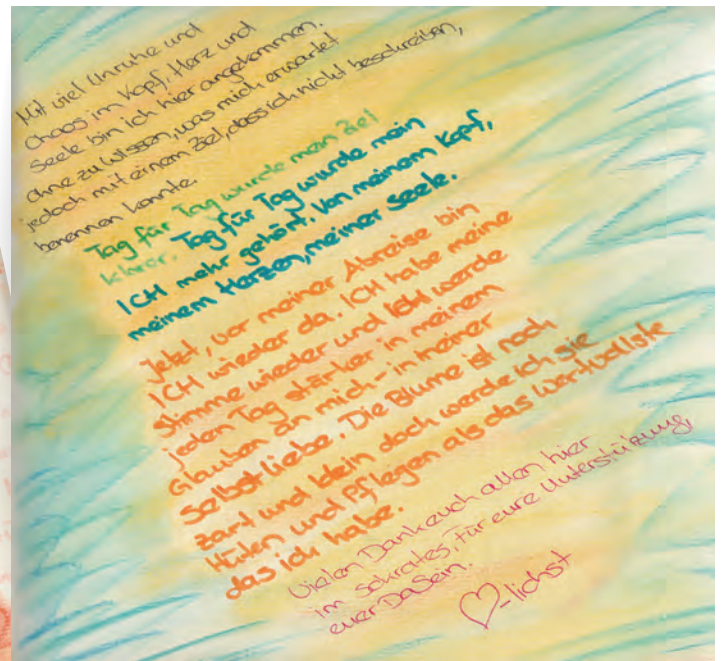 Mit viel Unruhe und
Chaos im Kopf, Herz und
Seele bin ich hier angekommen.
Ohne zu wissen, was mich erwartet
jedoch mit einem Ziel, dass ich nicht beschreiben,
benennen konnte.
Tag für Tag wurde mein Ziel
klarer. Tag für Tag wurde mein
ICH mehr gehört. Von meinem Kopf,
meinem Herzen, meiner Seele.
Jetzt, vor meiner Abreise bin
ICH wieder da. ICH habe meine
Stimme wieder und ICH werde
jeden Tag stärker in meinem
Glauben an mich - in meiner
Selbstliebe. Die Blume ist noch
zart und klein doch werde ich sie
Hüten und Pflegen als das wertvollste
das ich habe.
Vielen Dank euch allen hier
im Sokrates, für eure Unterstützung,
euer DaSein.
♡-lichst